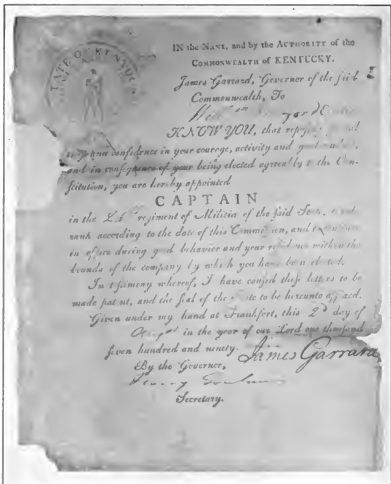 TATE OF KENTUC
IN the NAME, and by the AUTHORITY of the
COMMONWEALTH of KENTUCKY.
James Garrard, Governor of the said
Commonwealth, To
KNOW YOU, that
confidence in your courage, activity and
and in consequence of your being elected agreeably to the Con-
stitution, you are hereby appointed
CAPTAIN
in the regiment of Militia of the said
rank according to the date of this and
in office during good behavior and your within the
bounds of the company by which you have been elected.
In testimony whereof, I have caused these letters to be
made patent, and the seal of the to be hereunto
Given under my hand at Frankfort, this 2d day of
in the year of our Lord one thousand
seven hundred and ninety.
James Garrard
By the Governor,
Secretary.